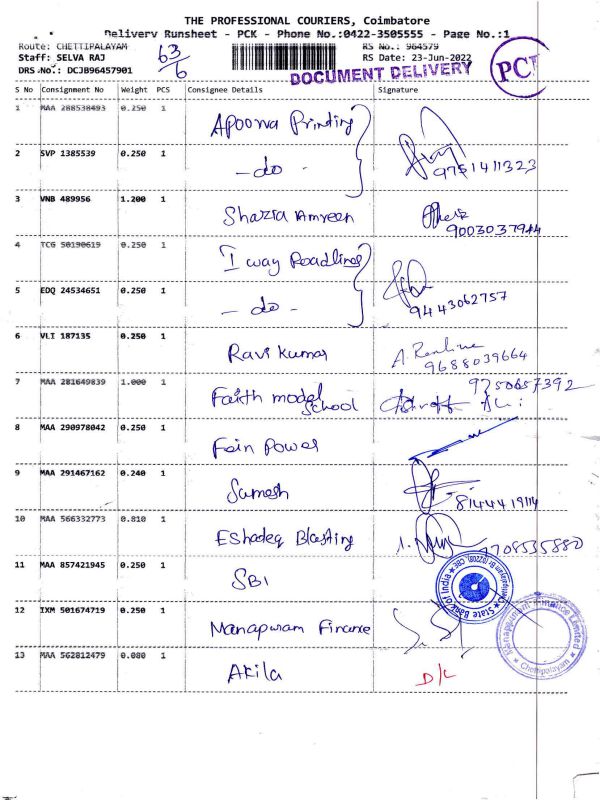 THE PROFESSIONAL COURIERS, Coimbatore
Delivery Runsheet - PCK - Phone No.:0422-3505555 - Page No.:1
Route: CHETTIPALAYAM
63/6
RS No.: 964579
Staff: SELVA RAJ
RS Date: 23-Jun-2022
DRS No.: DCJB96457901
DOCUMENT DELIVERY
S No Consignment No Weight PCS Consignee Details Signature
1 MAA 288538493 0.250 1 Apoorva Printing
2 SVP 1385539 0.250 1 - do - 9751411323
3 VNB 489956 1.200 1 Shazia Amreen 9003037944
4 TCG 50190619 0.250 1 I way Roadlines
5 EDQ 24534651 0.250 1 - do - 9443062757
6 VLI 187135 0.250 1 Ravi Kumar 9688039664
7 MAA 281649839 1.000 1 Faith model School 9750657392
8 MAA 290978042 0.250 1 Fein Power
9 MAA 291467162 0.240 1 Sumesh 8144419114
10 MAA 566332773 0.810 1 Blasting 9708535880
11 MAA 857421945 0.250 1 SBI
State Bank of India
12 IXM 501674719 0.250 1 Manapuram Finance
Manappuram Finance Limited
Chettipalayam
13 MAA 562812479 0.080 1 Akila D/L